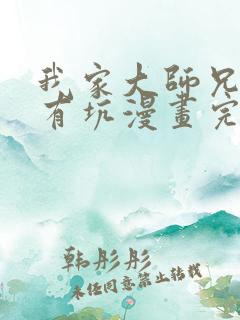 我家大師兄
有坑漫畫完
韩彤彤
未经同意禁止转载